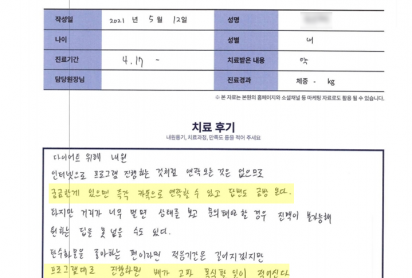 작성일 2021 년 5 월 12일 성명
나이 성별 녀
진료기간 4.19 - 치료받은 내용
담당원장님 진료경과 체중 - kg
※ 본 자료는 본원의 홈페이지와 소셜채널 등 마케팅 자료로도 활용 될 수 있습니다.
치료 후기
내원동기, 치료과정, 만족도 등을 적어 주세요
다이어트 위해 내원
인터넷으로 프로그램 진행하는 것처럼 연락오는 것은 없으므로
궁금한게 있으면 즉각 카톡으로 연락할 수 있고 답변도 금방 온다.
하지만 거리가 너무 멀면 상태를 보고 문의해야 할 경우 진맥이 불가능해
원하는 답을 못 얻을 수도 있다.
탄수화물을 좋아하는 편이라면 적응기간은 길어지겠지만
프로그램대로 진행하면 배가 고파 폭식할 일이 적어진다